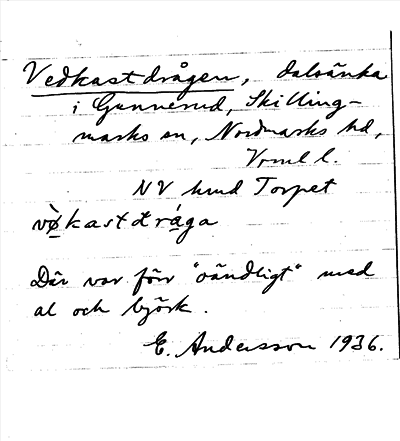 Vedkastdrågen, dalsänka
i Gunnerud, Skilling-
marks sn, Nordmarks hd,
Vrml l.
NV hmd Torpet
vø̀kastdråga
Där var förr "oändligt" med
al och björk.
E. Andersson 1936.